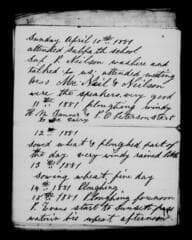 Sunday April 10th 1881
attended Sabbath school
Sup P. Neilson washere and
talked to us; attended meeting
bros Mc Neil & Neilson
were the speakers, very good
11th 1881 ploughing windy
H. W. & P. C. Peterson start
to the
12th 1881
Sowd wheat & ploughed part of
the day very windy rained little
13th 1881
Sowing wheat, fine day
14th 1881 Ploughing
15th 1881 Ploughing forenoon
P Evans start to Sunset, pay
wheat afternoon